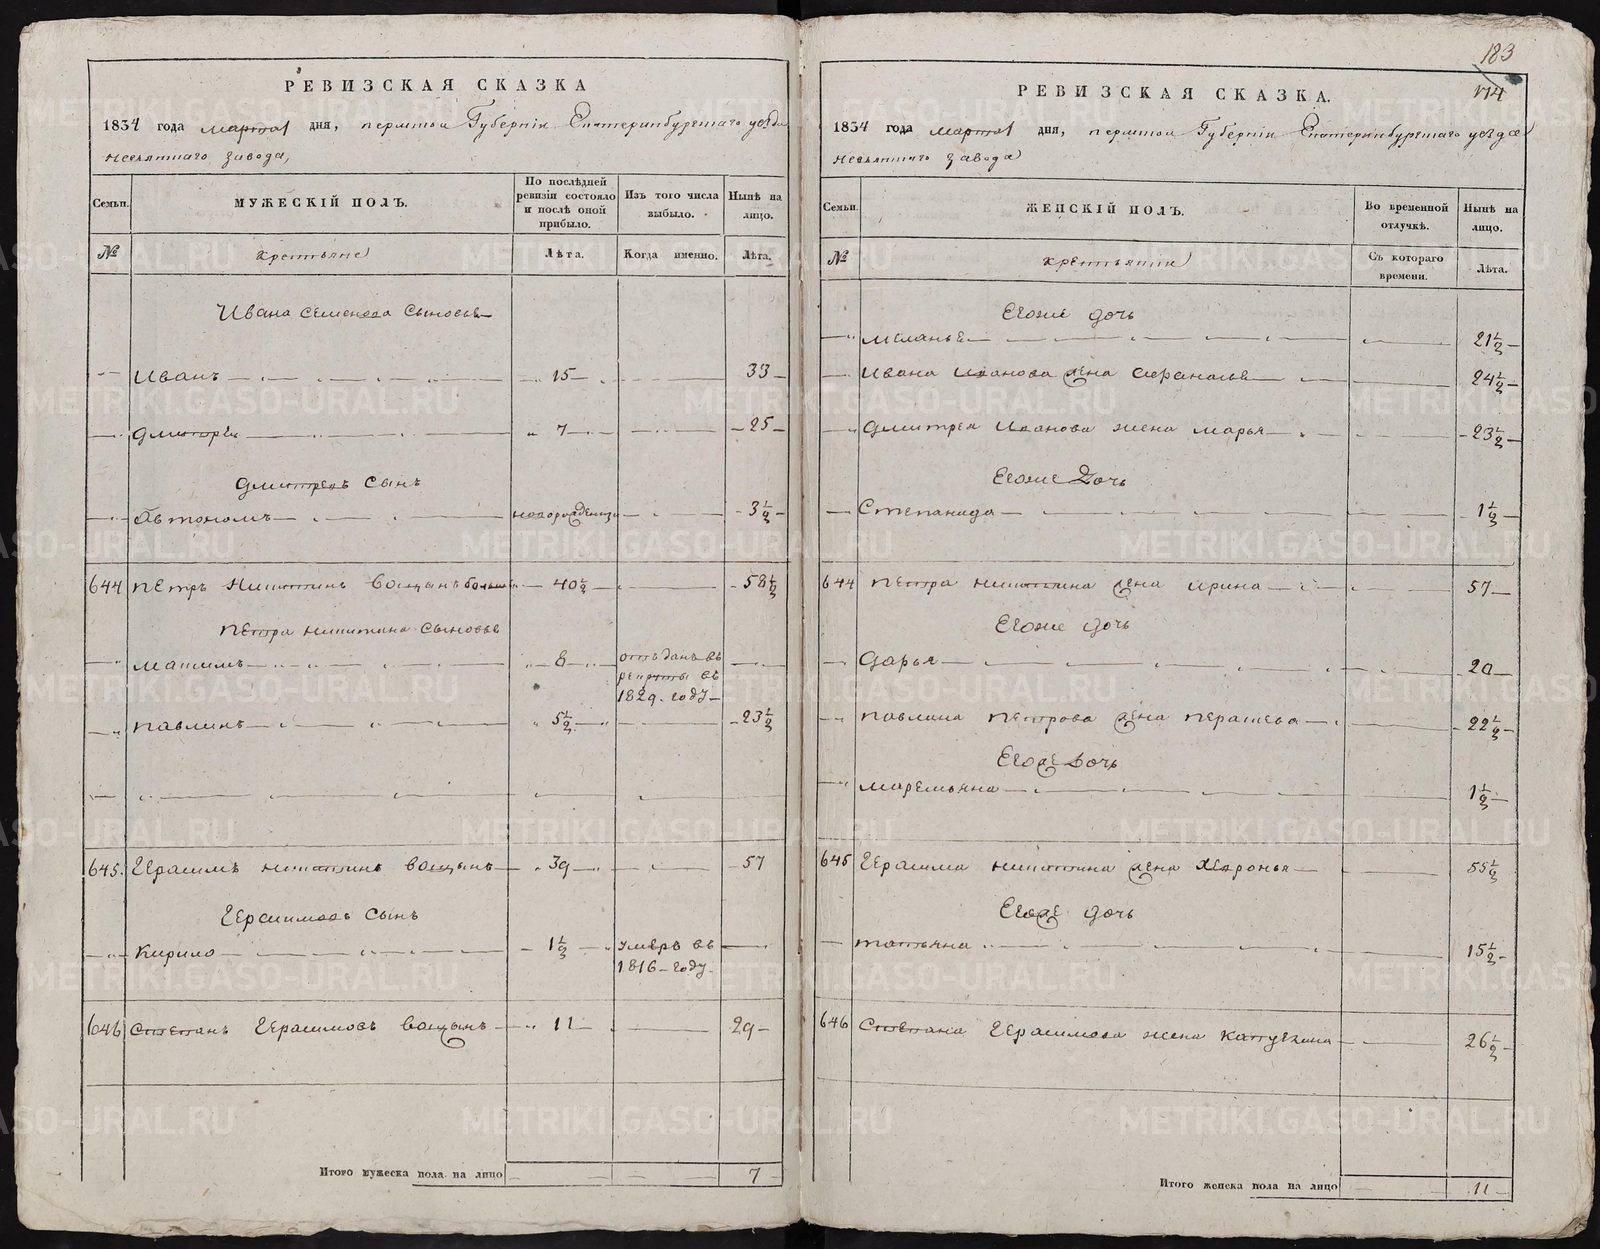 РЕВИЗСКАЯ СКАЗКА
1834 года марта дня, пермской Губерніи Екатеринбургскаго уезда
завода,
Семьи.
МУЖЕСКІЙ ПОЛЪ.
По послѣдней ревизіи состояло и послѣ оной прибыло.
Изъ того числа выбыло.
Нынѣ на лицо.
№
крестьяне
Лѣта.
Когда именно.
Лѣта.
Ивана семенова сыновья
Иванъ 15 33
дмитрей 7 25
дмитреевъ сынъ
автономъ новорожденный 3½
644 петръ никитинъ вощынъ больш 40½ 58½
петра никитина сыновья
максимъ 8 отъданъ въ
рекруты въ
1829. году
павлинъ 5½ 23½
645. герасимъ никитинъ вощынъ 39 57
герасимовъ сынъ
кирило 1½ умеръ въ
1816 году.
646 степанъ герасимовъ вощынъ 11 29
Итого мужеска пола на лицо 7
183
174
РЕВИЗСКАЯ СКАЗКА.
1834 года марта дня, пермской Губерніи Екатеринбургскаго уезда
завода
Семьи.
ЖЕНСКІЙ ПОЛЪ.
Во временной отлучкѣ.
Нынѣ на лицо.
№
крестьянки
Съ котораго времени.
Лѣта.
Егоже дочь
меланья 21½
Ивана иванова жена афанасья 24½
дмитрея иванова жена марья 23½
Егоже дочь
Степанида 1½
644 петра никитина жена ирина 57
Егоже дочь
дарья 20
павлина петрова жена 22½
Егоже дочь
маремьяна 1½
645 герасима никитина жена хавронья 55½
Егоже дочь
татьяна 15½
646 степана герасимова жена 26½
Итого женска пола на лицо 11
METRIKI.GASO-URAL.RU